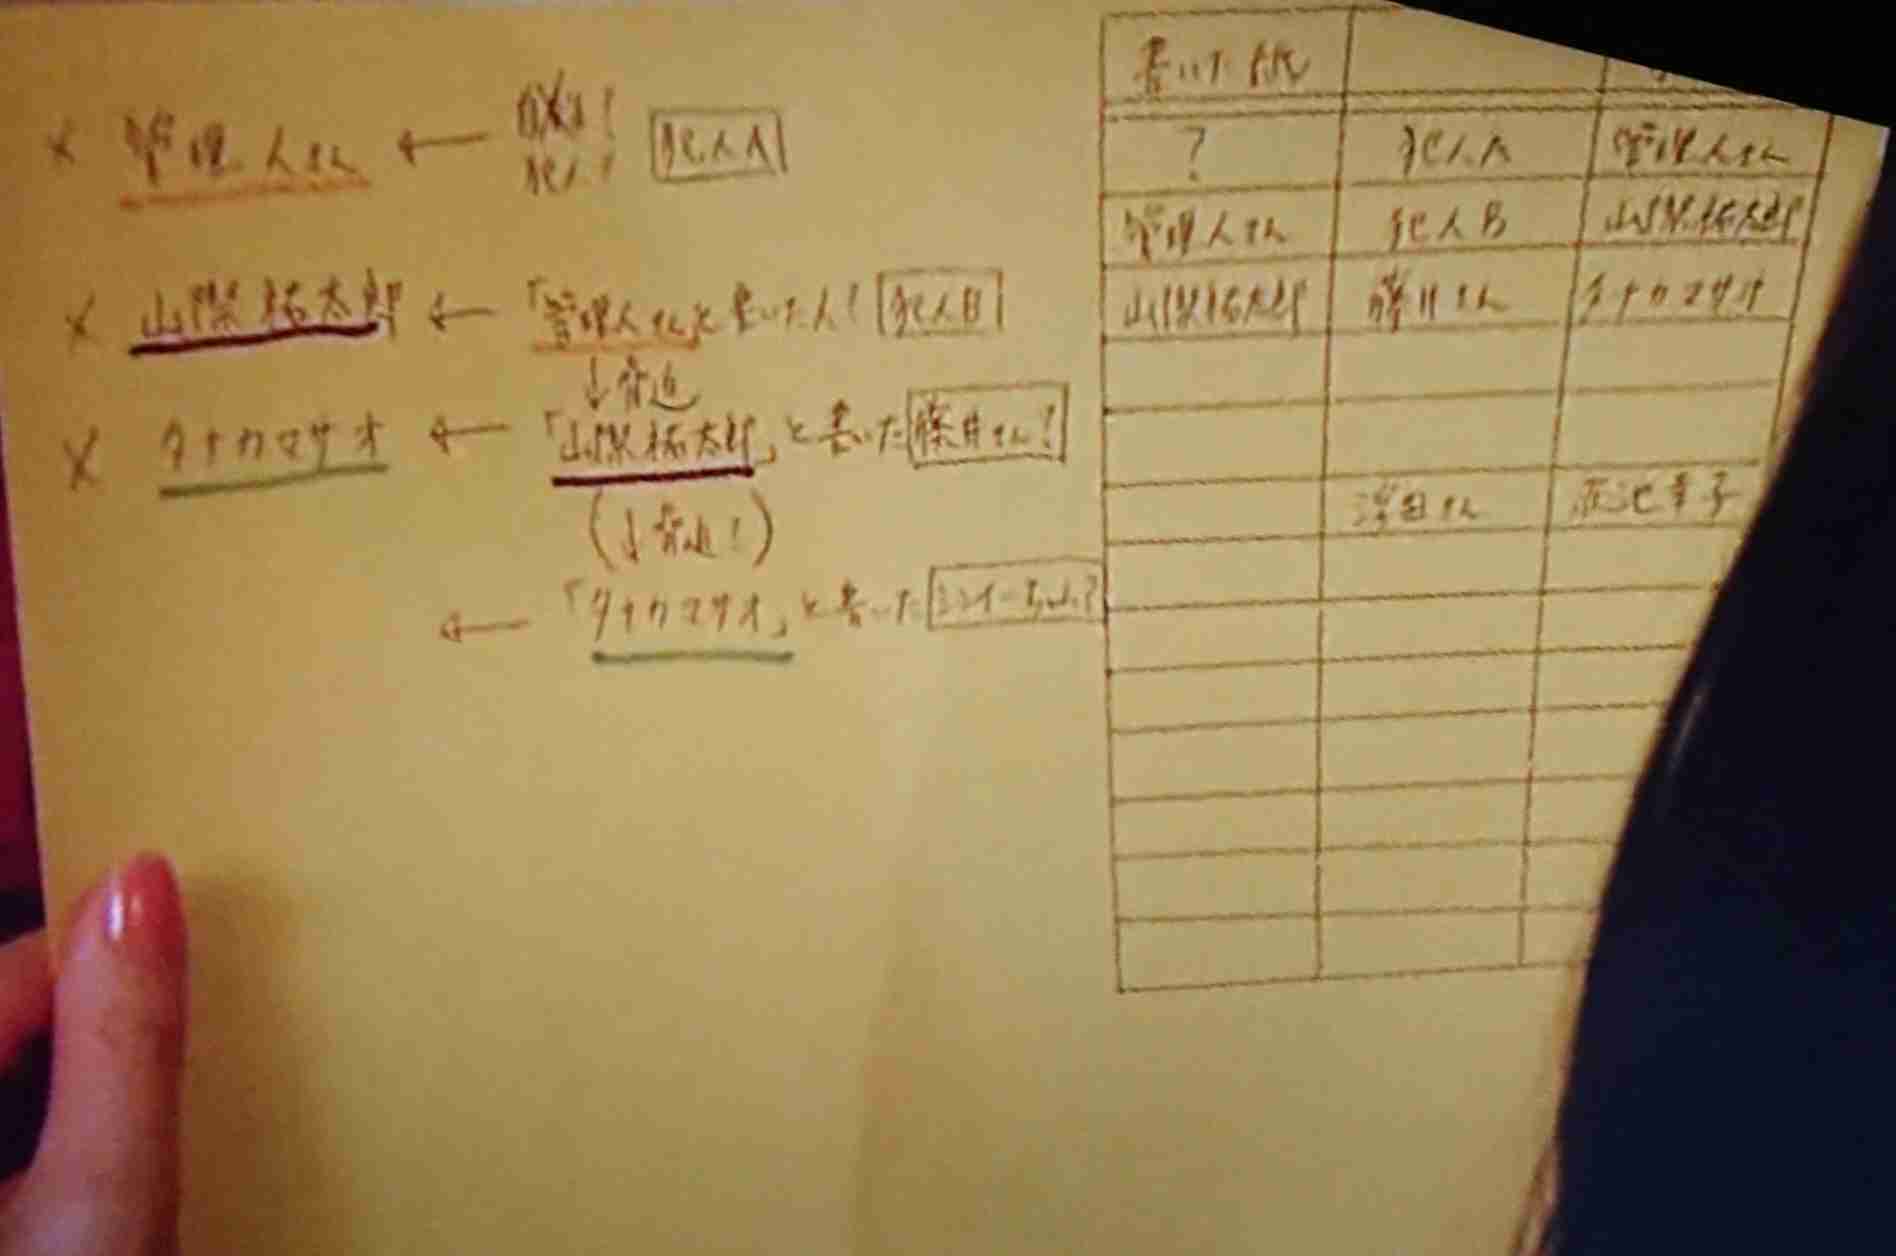 × 管理人さん ← 犯人A
× 山際祐太郎 ← 「管理人さん」と書いた人! 犯人B
↓脅迫
× タナカマサオ ← 「山際祐太郎」と書いた 藤井さん!
(↓脅迫!)
← 「タナカマサオ」と書いた シンイーちゃん?
書いた
? 犯人A 管理人さん
管理人さん 犯人B 山際祐太郎
山際祐太郎 藤井さん タナカマサオ
赤池幸子